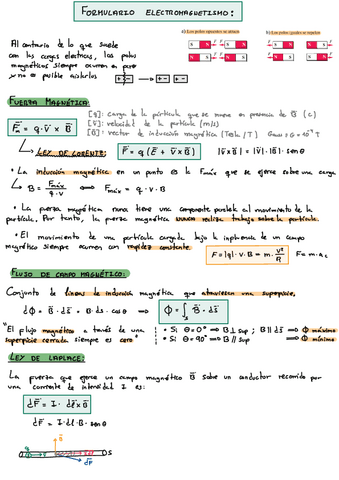 FORMULARIO ELECTROMAGNETISMO:
Al contrario de lo que sucede
con las cargas eléctricas, los polos
magnéticos siempre ocurren en pares
y no es posible aislarlos
a) Los polos opuestos se atraen
b) Los polos iguales se repelen
FUERZA MAGNÉTICA:
F⃗m = q · v⃗ x B⃗
[q]: carga de la partícula que se mueve en presencia de B (C)
[v⃗]: velocidad de la partícula (m/s)
[B⃗]: vector de inducción magnética (Tesla / T)
LEY DE LORENTZ:
F⃗ = q (E⃗ + v⃗ x B⃗)
|v⃗ x B⃗| = |v⃗| · |B⃗| · sen θ
• La inducción magnética en un punto es la Fmáx que se ejerce sobre una carga
B = Fmáx / q · v ⟹ Fmáx = q · v · B
• La fuerza magnética nunca tiene una componente paralela al movimiento de la
partícula. Por tanto, la fuerza magnética nunca realiza trabajo sobre la partícula.
• El movimiento de una partícula cargada bajo la influencia de un campo
magnético siempre ocurren con rapidez constante.
F = |q| · v · B = m · v²/R
F = m · ac
FLUJO DE CAMPO MAGNÉTICO:
Conjunto de líneas de inducción magnética que atraviesan una superficie.
dΦ = B⃗ · ds⃗ = B · ds · cos θ ⟹ Φ = ∫s B⃗ · ds⃗
"El flujo magnético a través de una
superficie cerrada siempre es cero"
• Si θ = 0° ⟹ B ⊥ sup ; B // ds ⟹ Φ máximo
• Si θ = 90° ⟹ B // sup ⟹ Φ mínimo
LEY DE LAPLACE:
La fuerza que ejerce un campo magnético B⃗ sobre un conductor recorrido por
una corriente de intensidad I es:
dF⃗ = I · dl⃗ x B⃗
dF = I · dl · B · sen θ
B⃗
S
dF⃗